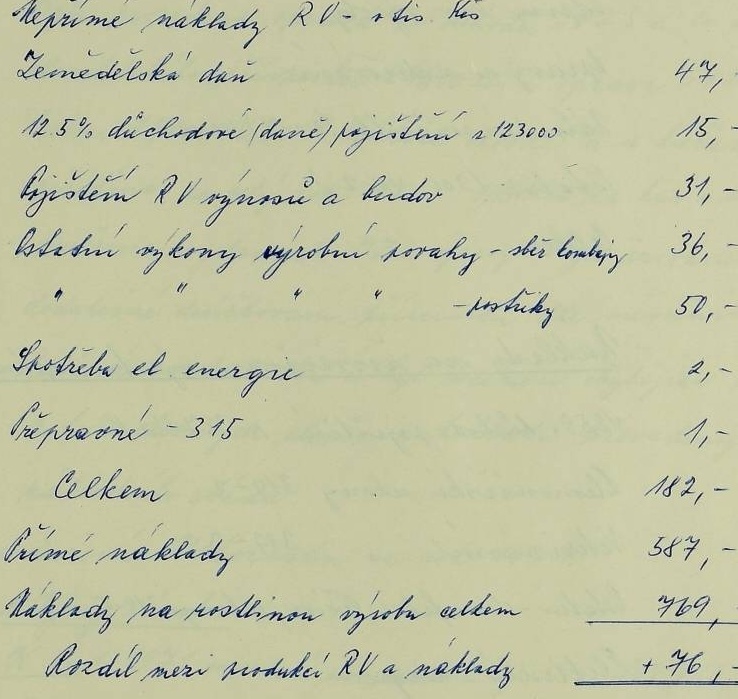 Nepřímé náklady RV - v tis. Kčs
Zemědělská daň 47,-
12.5% důchodové (daně) pojištění z 123000 15,-
Pojištění RV výnosů a budov 31,-
Ostatní výkony výrobní povahy - sběr kombajny 36,-
" " " " - postřiky 50,-
Spotřeba el. energie 2,-
Přepravné - 315 1,-
Celkem 182,-
Přímé náklady 587,-
Náklady na rostlinou výrobu celkem 769,-
Rozdíl mezi produkcí RV a náklady + 76,-